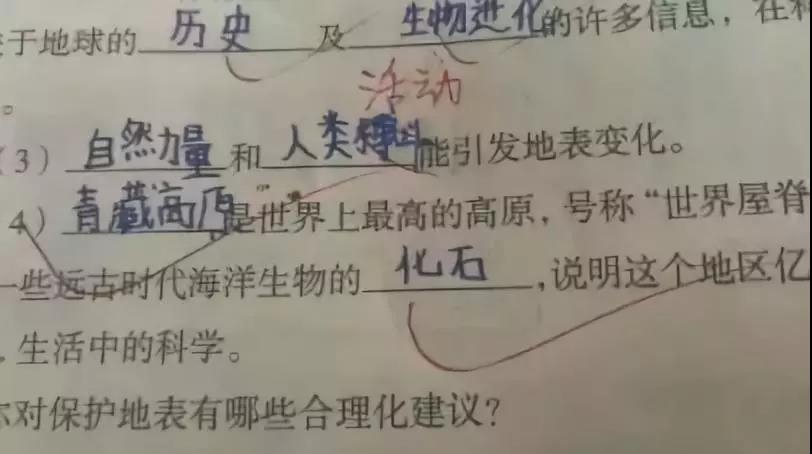 于地球的历史及生物进化的许多信息，在科
活动
。
（3）自然力量和人类能引发地表变化。
4）青藏高原是世界上最高的高原，号称“世界屋脊
一些远古时代海洋生物的化石，说明这个地区亿
．生活中的科学。
你对保护地表有哪些合理化建议？